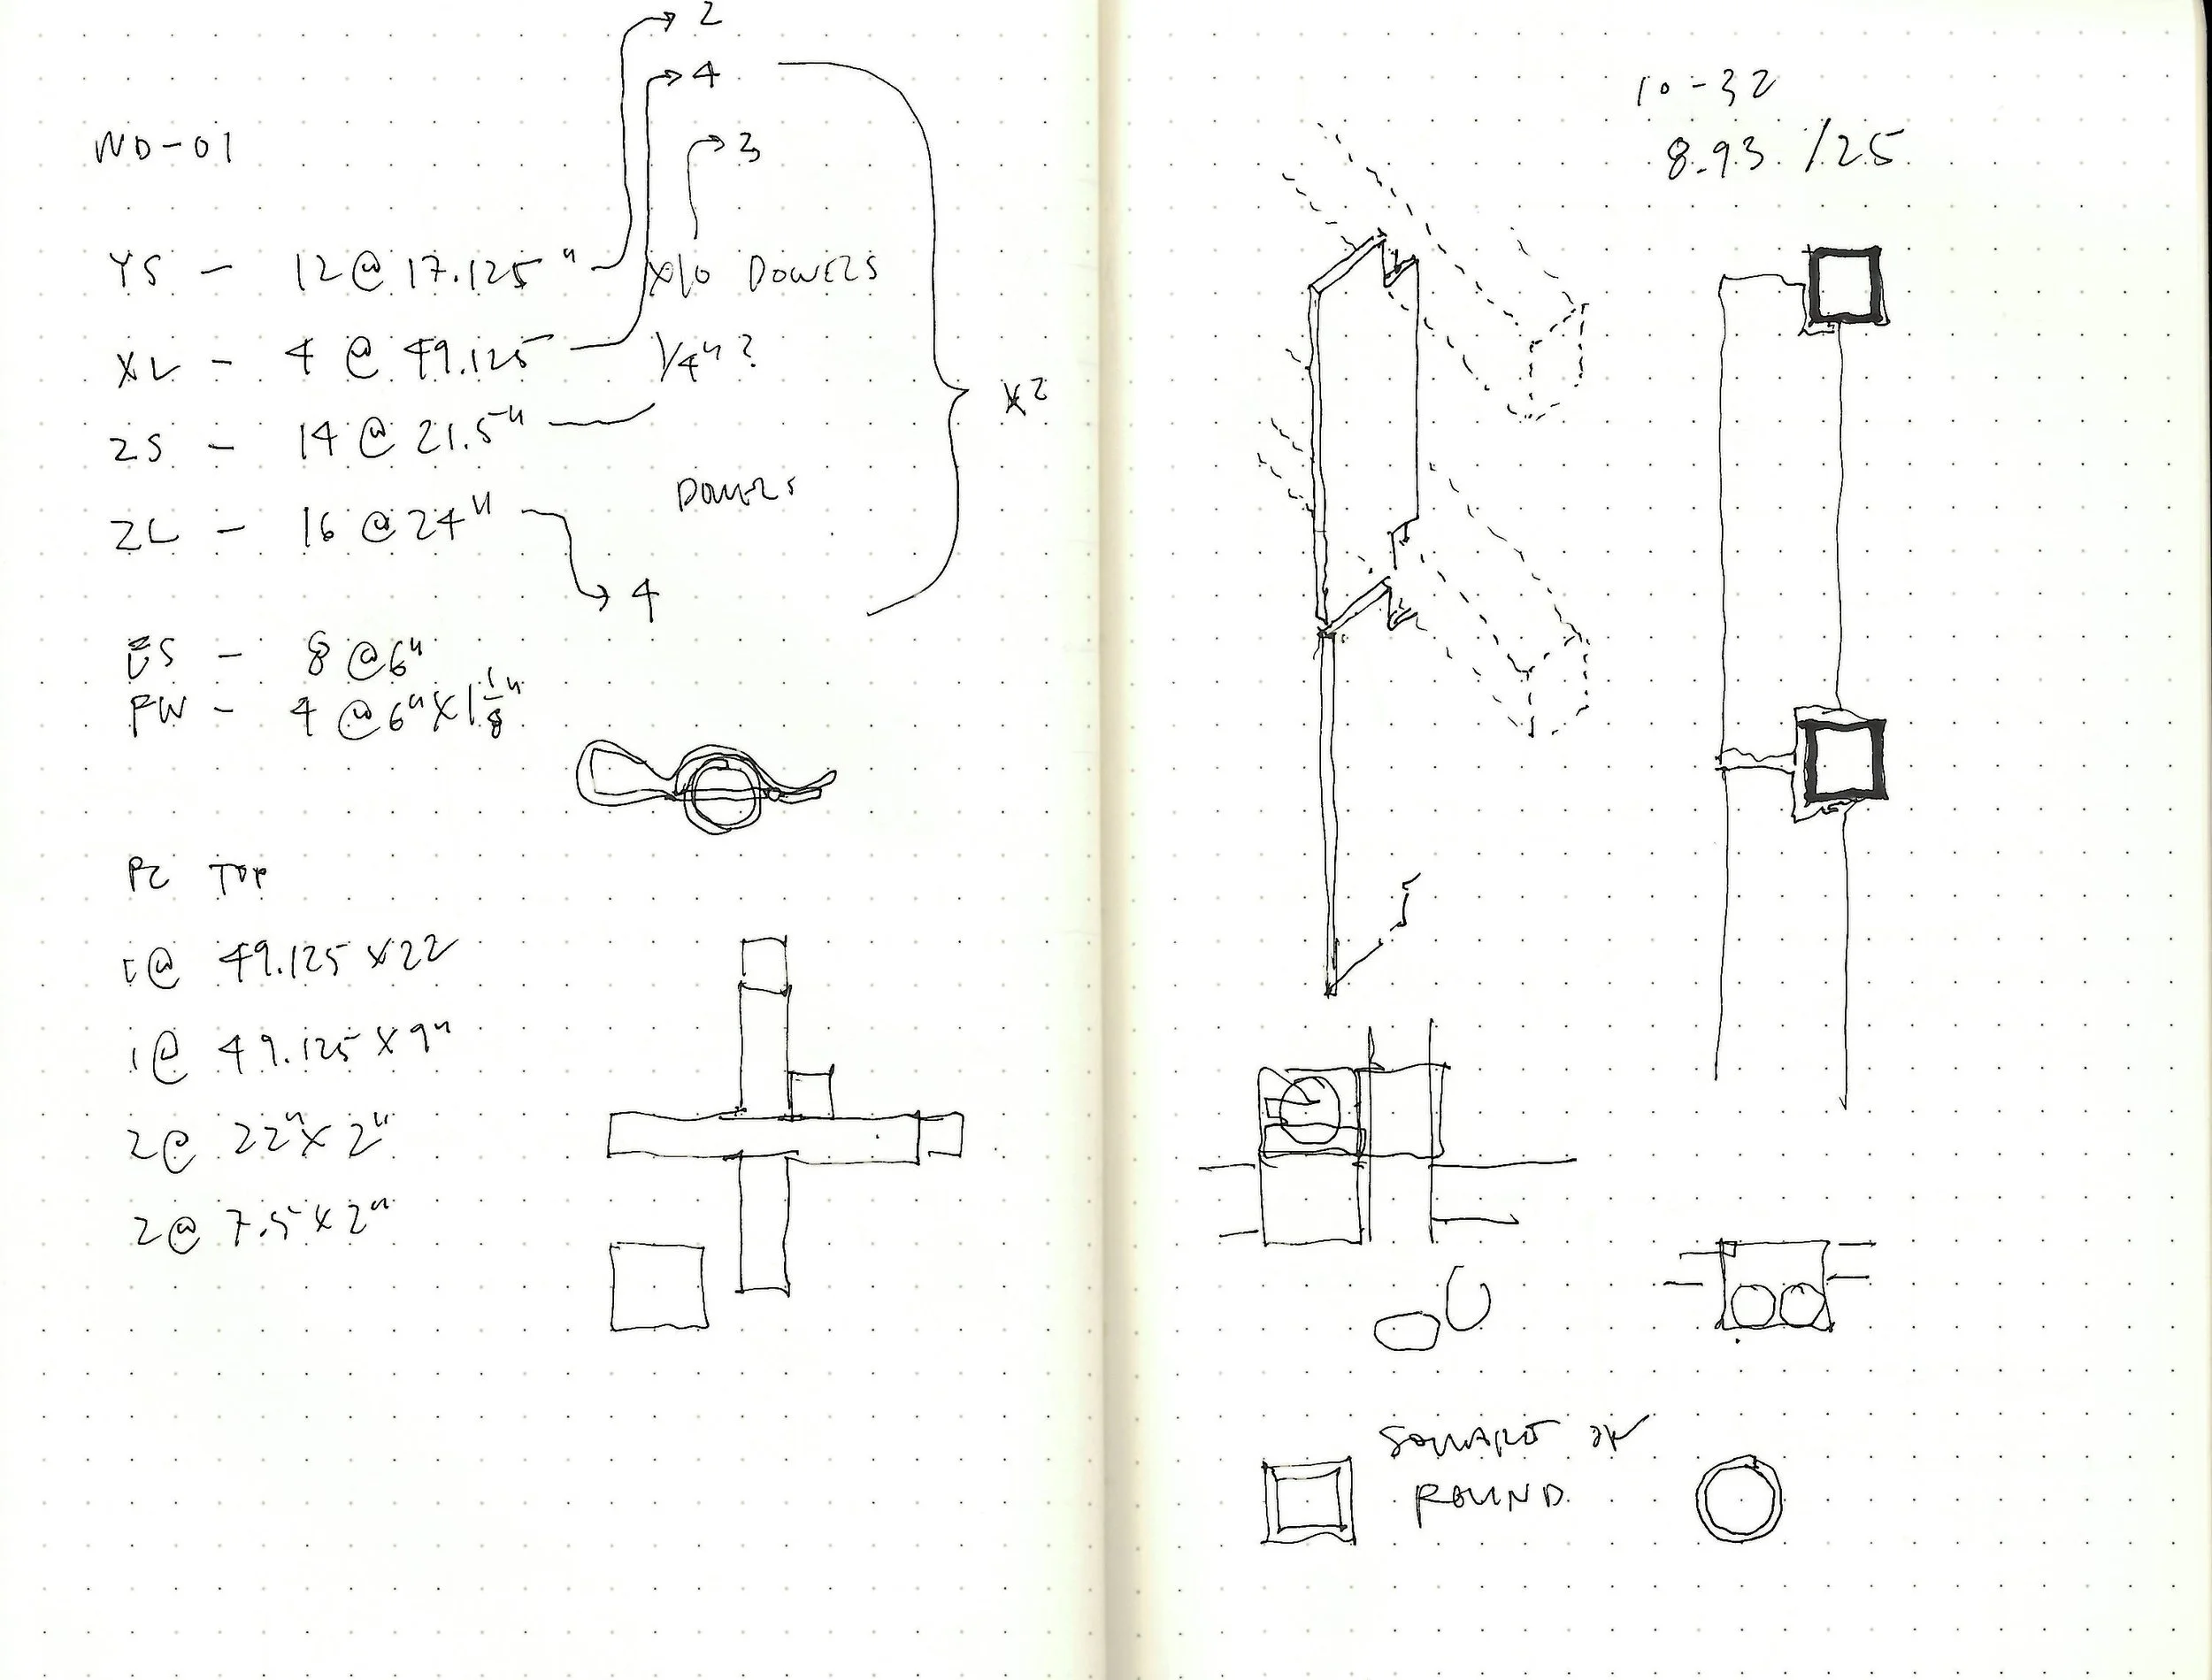 2
4
3
ND-01
YS - 12 @ 17.125" x10 DOWELS
XL - 4 @ 49.125 1/4"?
x2
ZS - 14 @ 21.5"
DOWELS
ZL - 16 @ 24"
4
ES - 8 @ 6"
FW - 4 @ 6" x 1 1/8"
PC TOP
1 @ 49.125 x 22
1 @ 49.125 x 9"
2 @ 22" x 2"
2 @ 7.5 x 2"
10-32
8.93 /25
SQUARE OR
ROUND